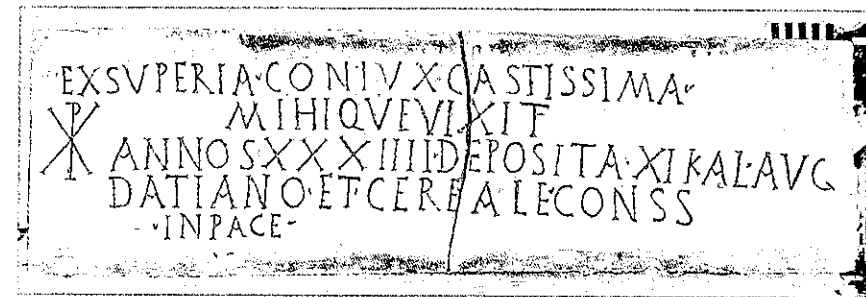 EXSVPERIA·CONIVX·CASTISSIMA·
MIHIQVEVIXIT
☧ ANNOS·XXXIIII·DEPOSITA·XI KAL·AVG
DATIANO·ET·CEREALE·CONSS
·INPACE·